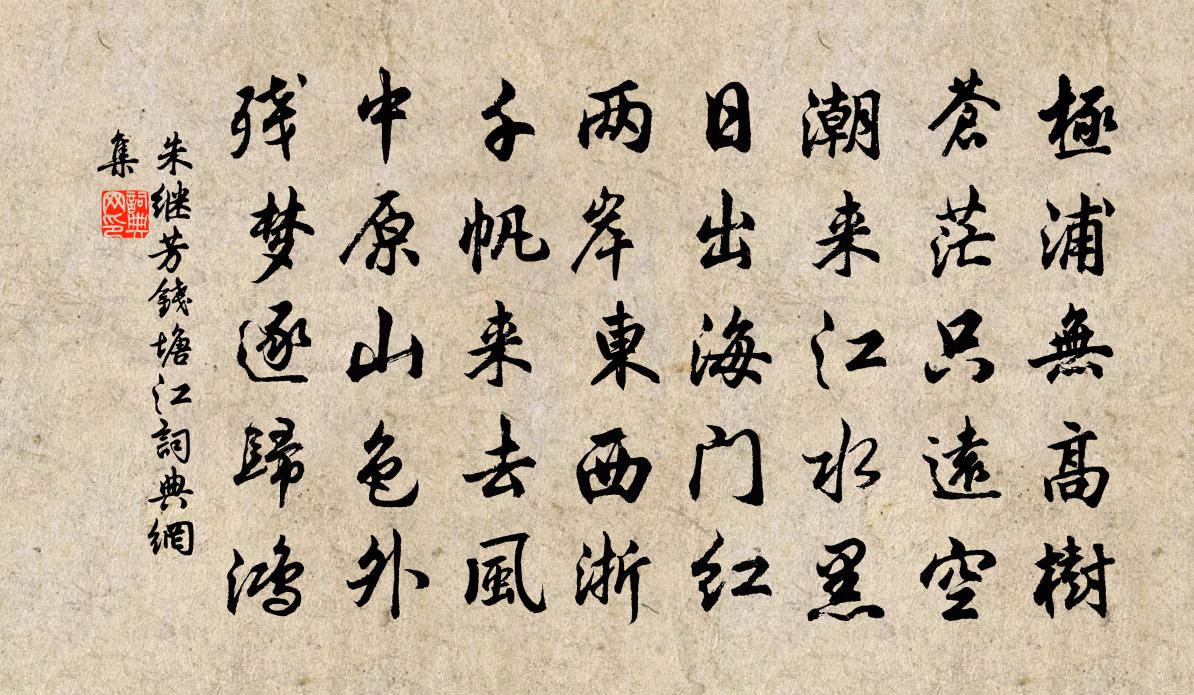 極浦無高樹
蒼茫只遠空
潮来江水黑
日出海门红
两岸東西浙
千帆来去風
中原山色外
残梦逐歸鴻
朱继芳錢塘江詞典網
集
詞典
网印